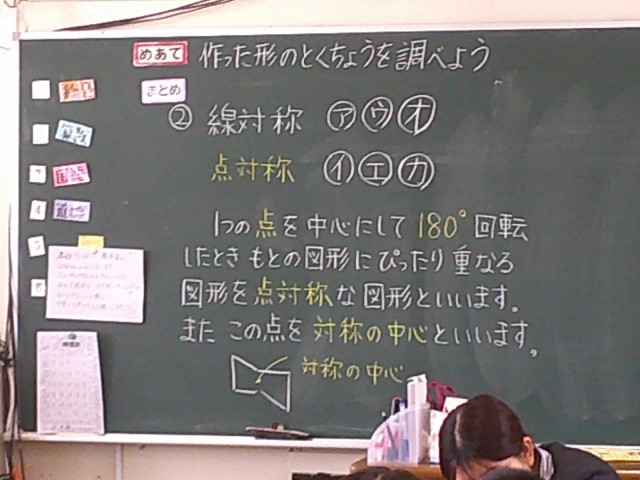 めあて 作った形のとくちょうを調べよう
まとめ
② 線対称 ㋐㋒㋔
点対称 ㋑㋓㋕
1つの点を中心にして180°回転
したとき もとの図形にぴったり重なる
図形を点対称な図形といいます。
また この点を対称の中心といいます。
対称の中心
算数
国語
道徳